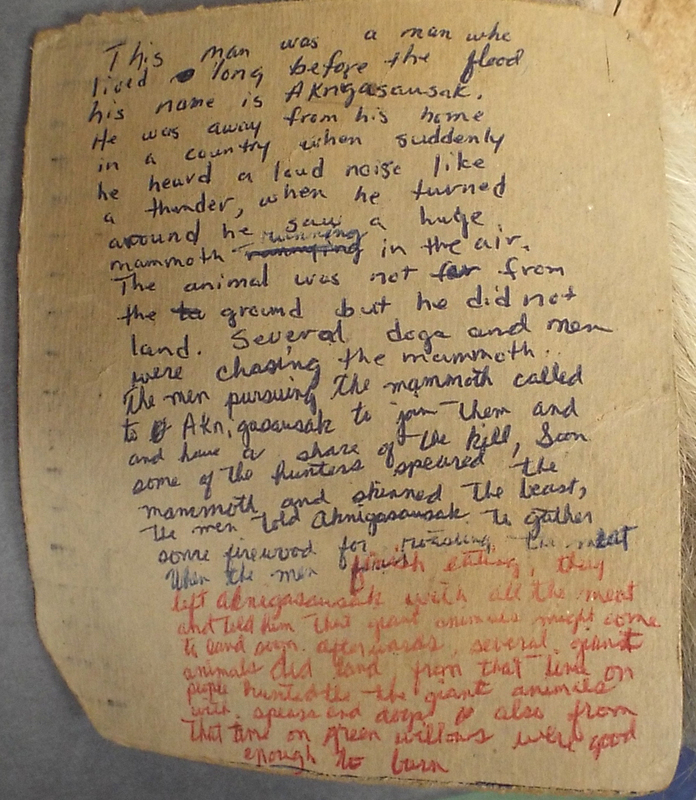 This man was a man who
lived long before the flood
his name is Aknigasausak.
He was away from his home
in a country when suddenly
he heard a loud noise like
a thunder, when he turned
around he saw a huge
mammoth running in the air.
The animal was not far from
the ground but he did not
land. Several dogs and men
were chasing the mammoth.
The men pursuing the mammoth called
to Aknigasausak to join them and
and have a share of the kill, Soon
some of the hunters speared the
mammoth and skinned the beast,
the men told Aknigasausak to gather
some firewood for roasting the meat
When the men finish eating, they
left Aknigasausak with all the meat
and told him that giant animals might come
to land soon. afterwards, several giant
animals did land from that time on
people hunted the the giant animals
with spears and dogs also from
that time on green willows were good
enough to burn